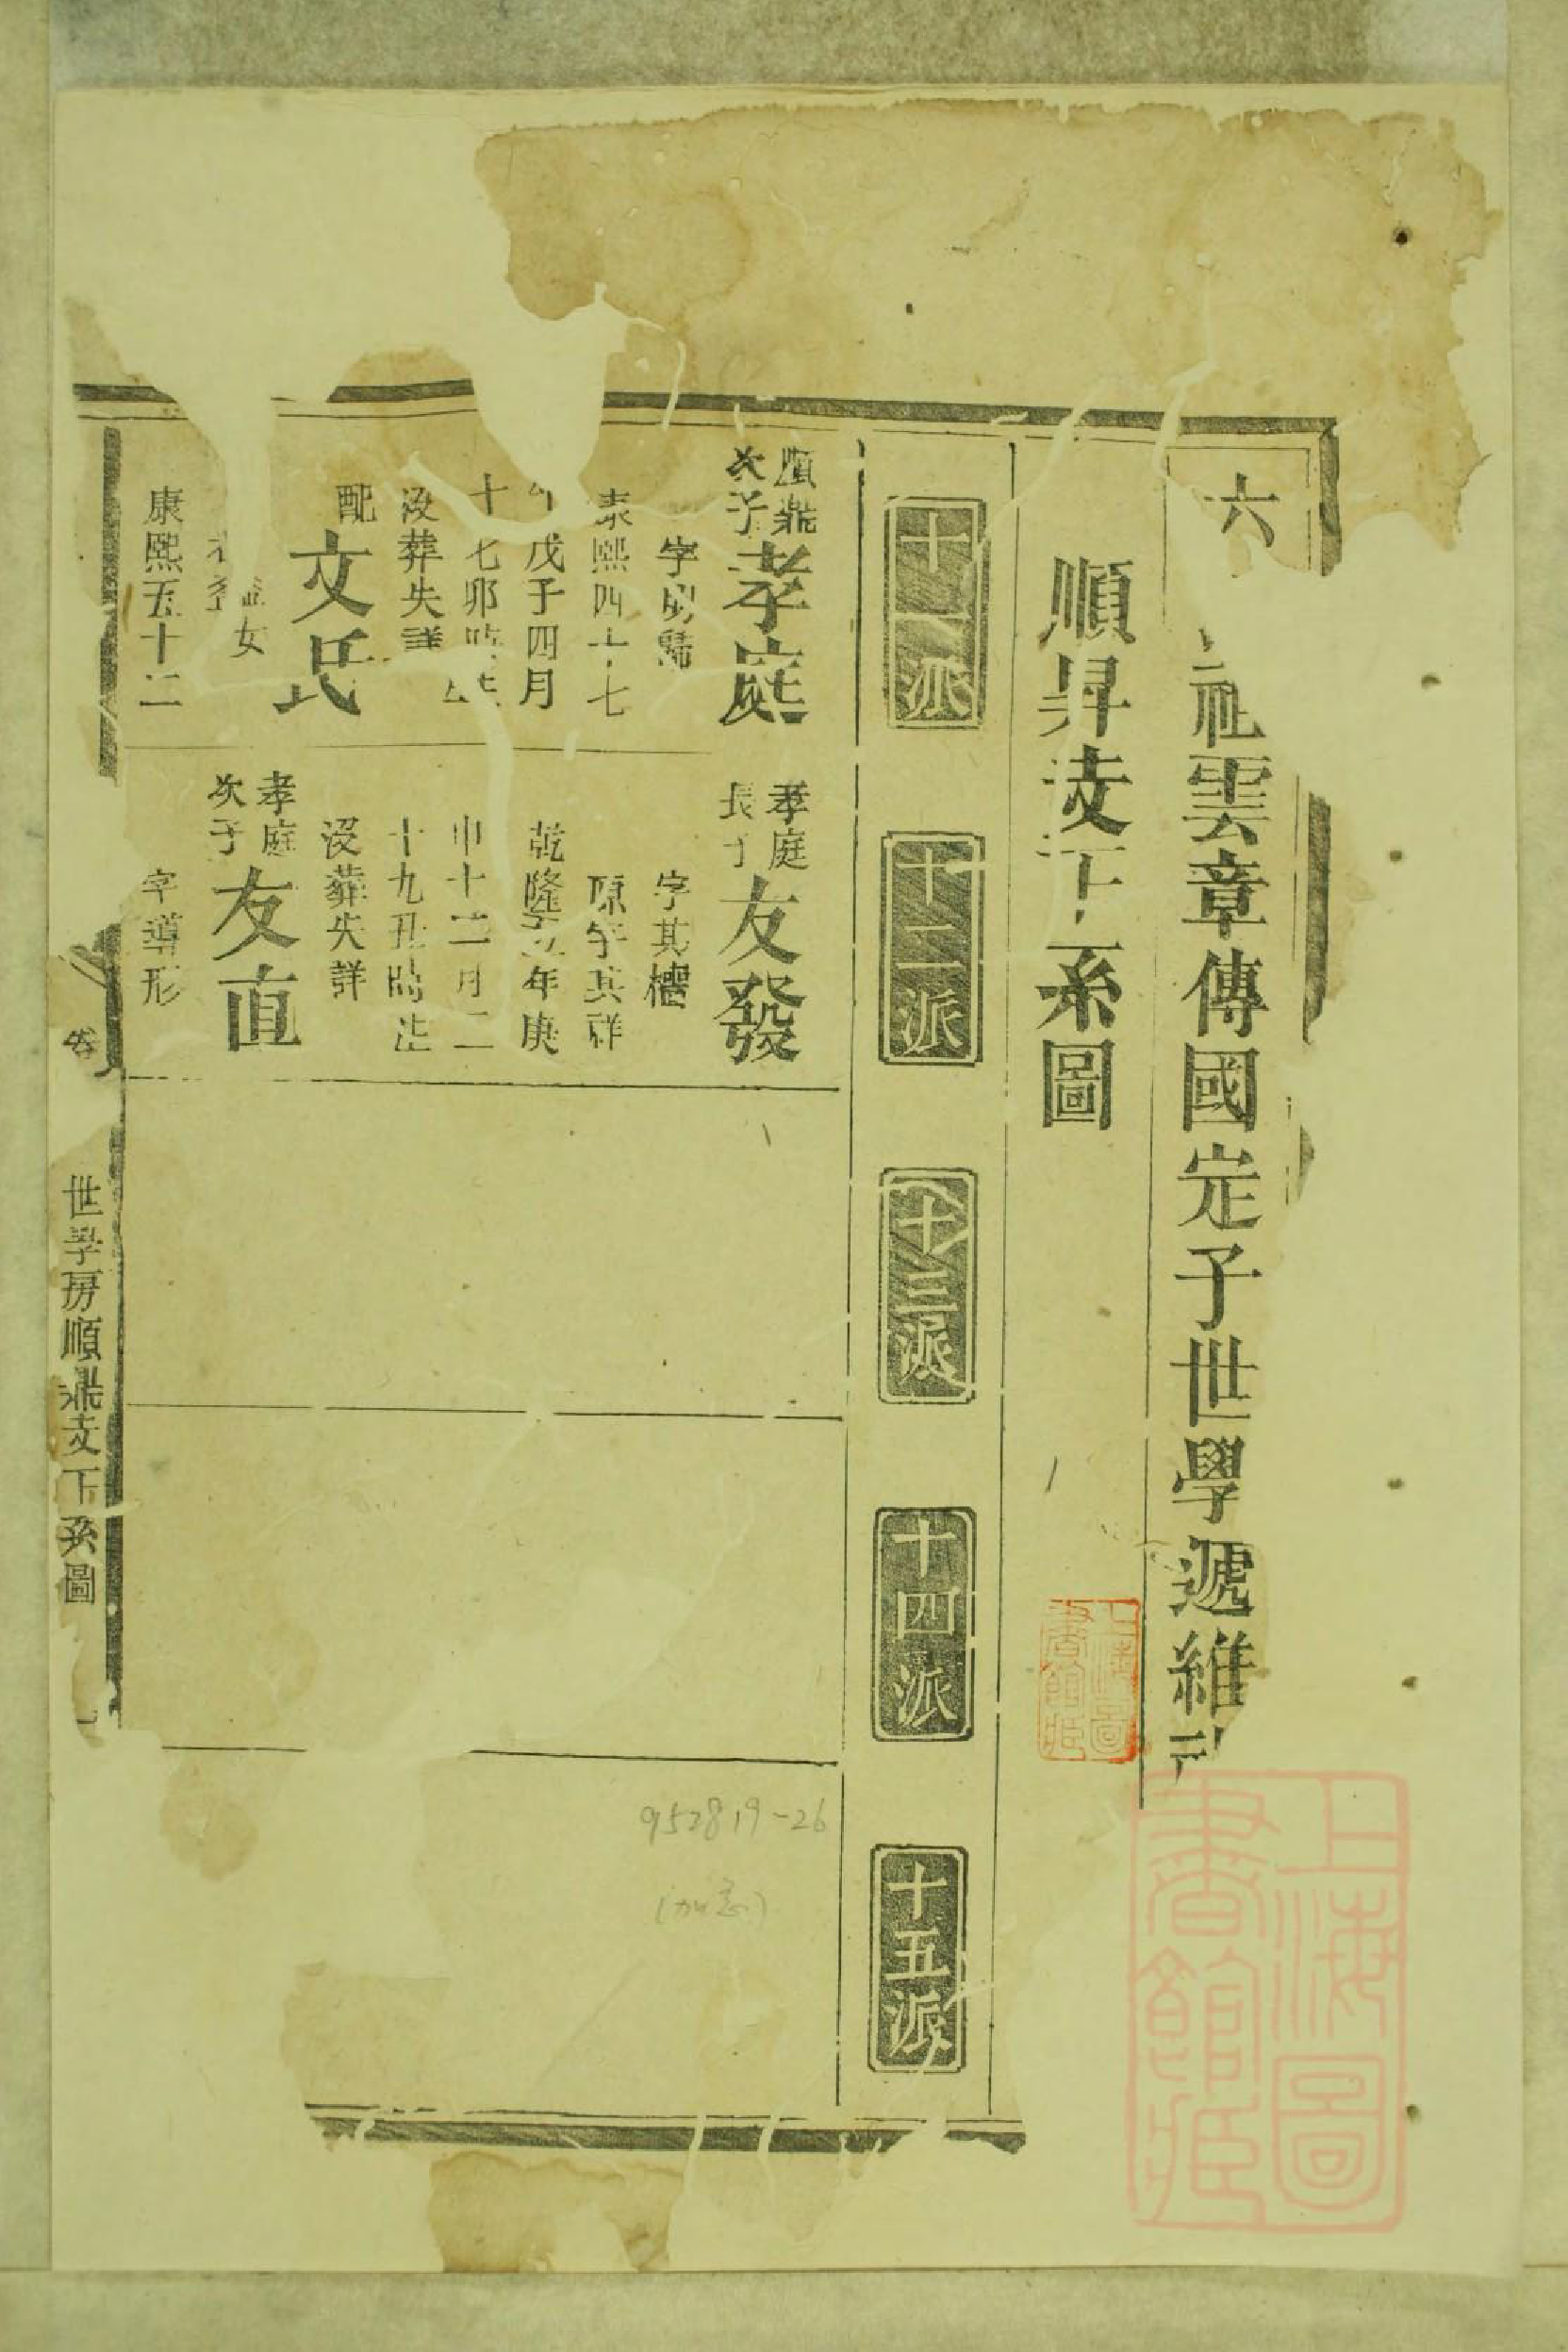 六 祖雲章傳國定子世學遞維
順昇支下系圖
十一派
十二派
十三派
十四派
十五派
順鼎
次子
孝庭
字
康熙四十七
年戊子四月
十七卯時生
沒葬失詳
配
文氏
女
康熙五十二
孝庭
長子
友發
字其櫻
原字其祥
乾隆五年庚
申十二月二
十九丑時生
沒葬失詳
孝庭
次子
友直
字導形
卷
世學房順鼎支下系圖
一
952819-26
上海圖
書館藏
上海圖
書館藏